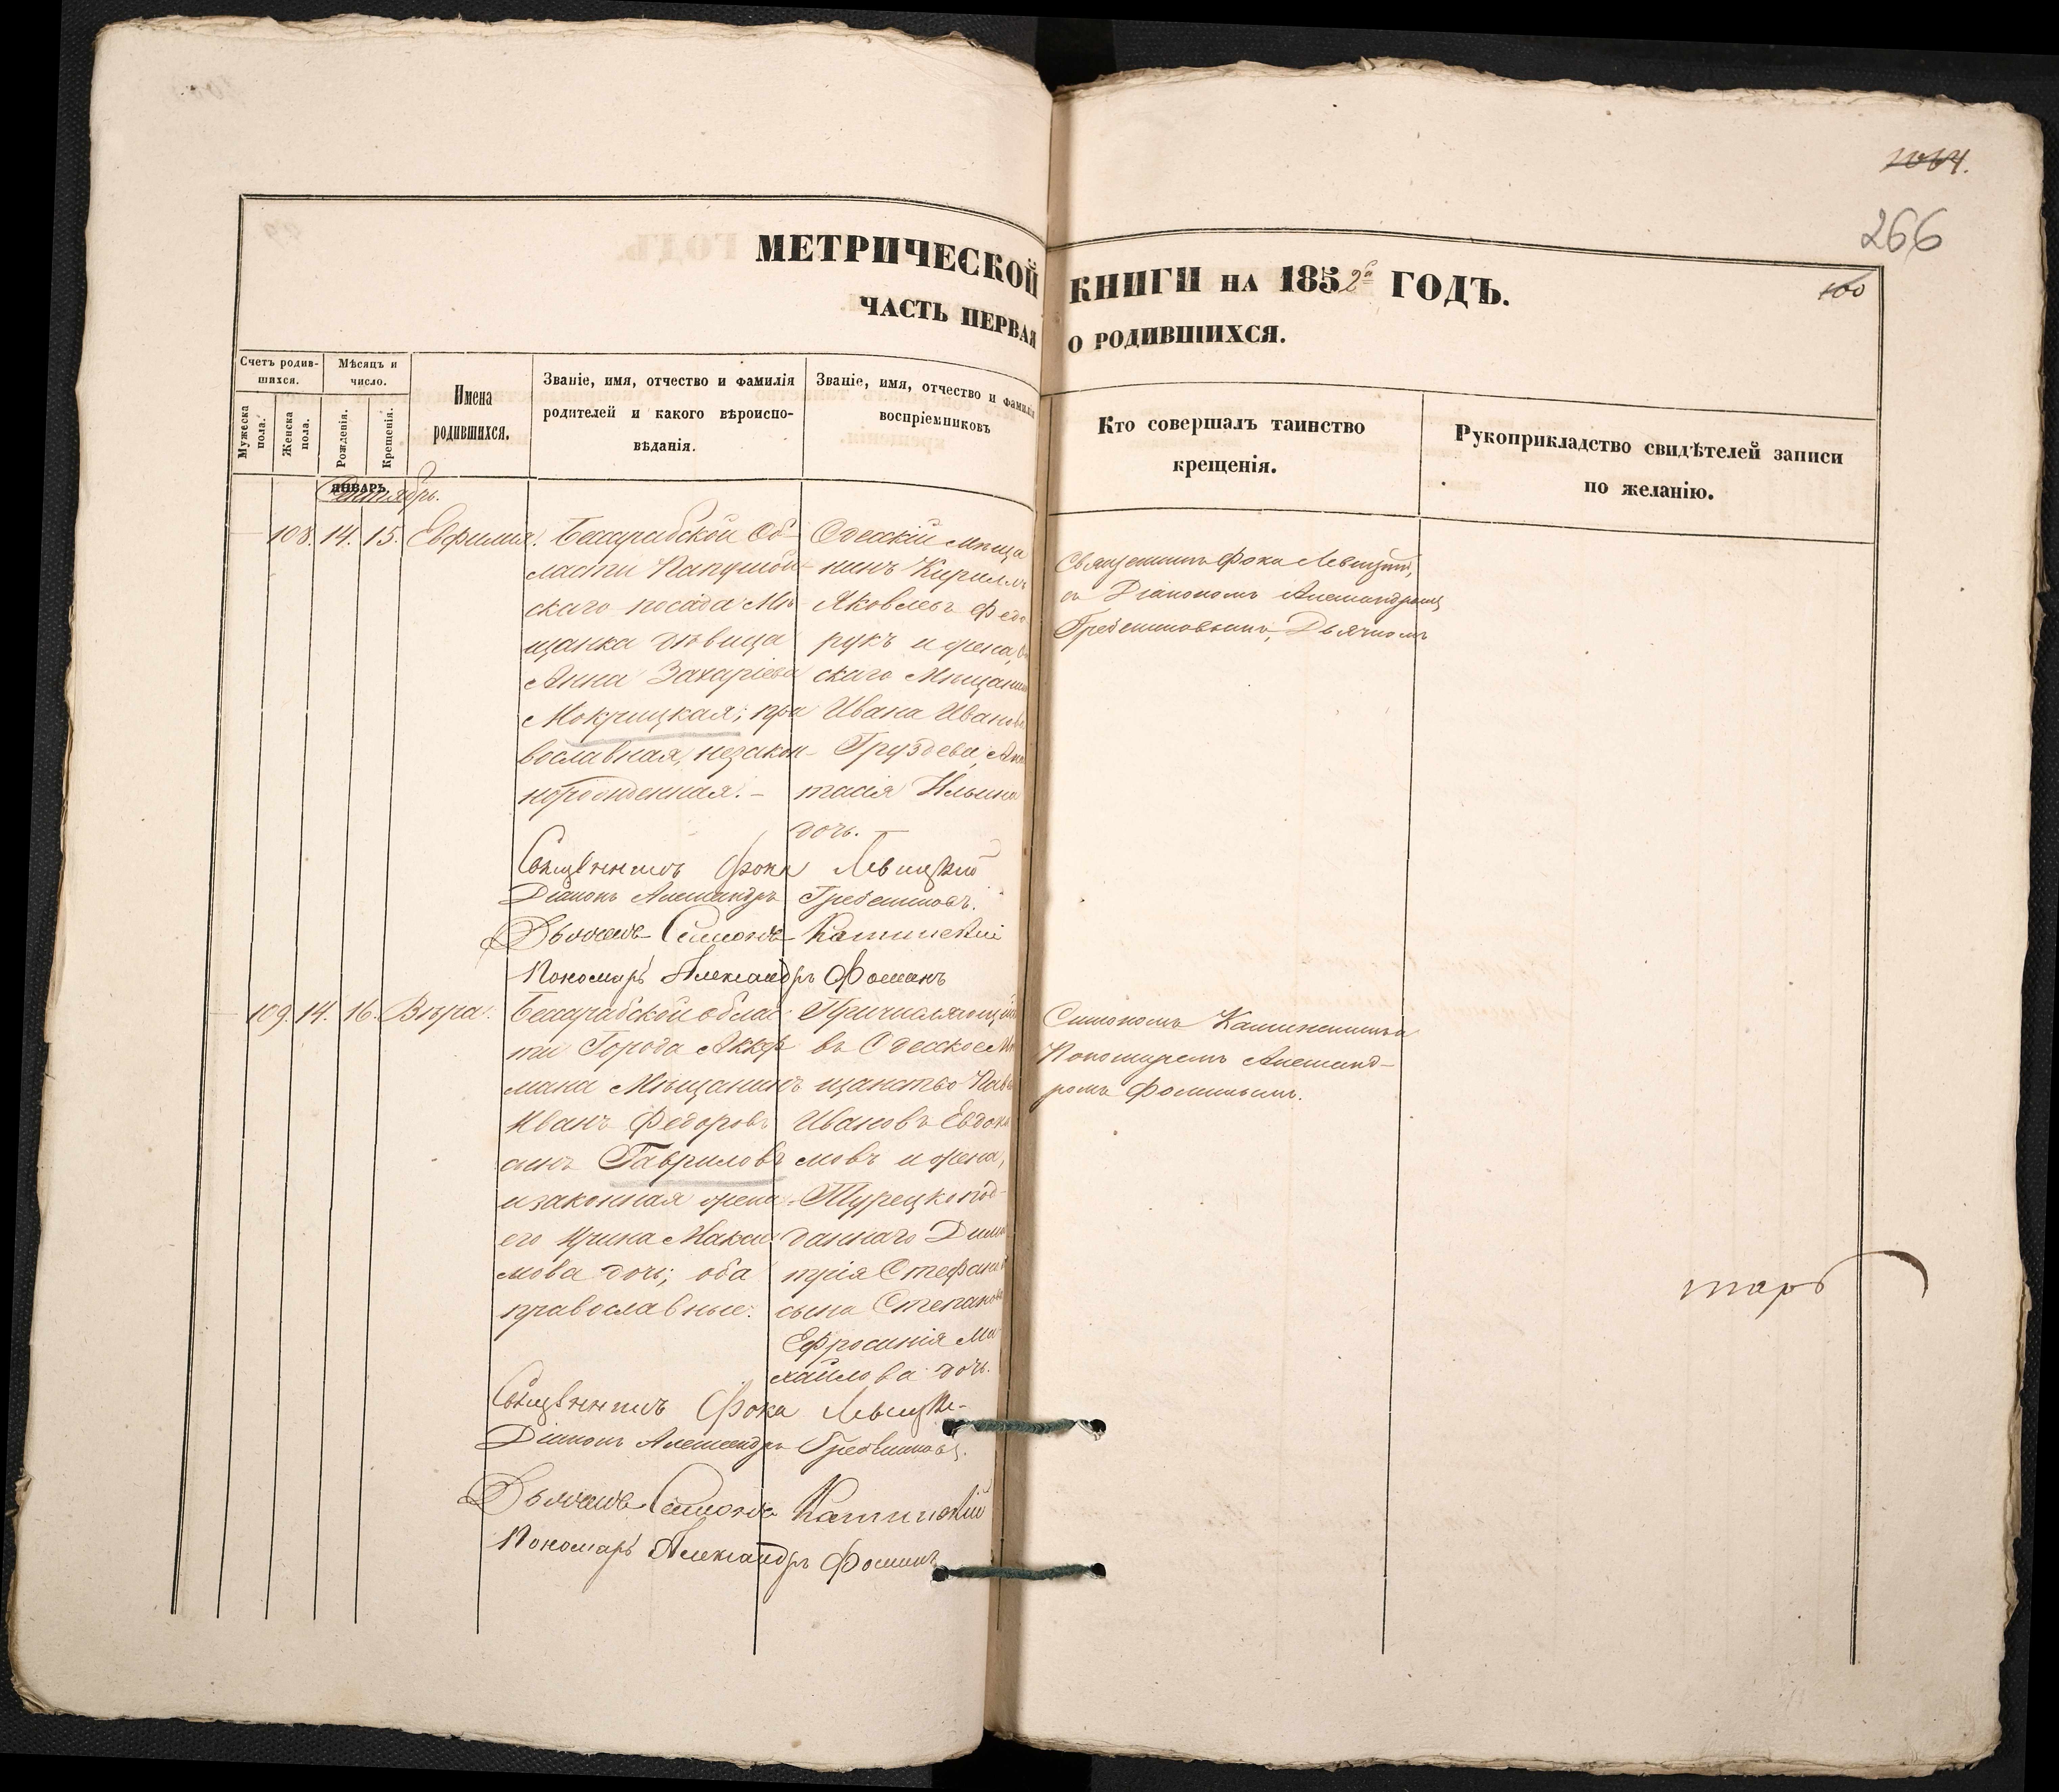 1064.
266
100
МЕТРИЧЕСКОЙ КНИГИ НА 1852го ГОДЪ.
ЧАСТЬ ПЕРВАЯ О РОДИВШИХСЯ.
Счетъ родив-
шихся.
Мужеска пола.
Женска пола.
Мѣсяцъ и
число.
Рожденія.
Крещенія.
Имена
родившихся.
Званіе, имя, отчество и фамилія
родителей и какого вѣроиспо-
вѣданія.
Званіе, имя, отчество и фамилія
воспріемниковъ
Кто совершалъ таинство
крещенія.
Рукоприкладство свидѣтелей записи
по желанію.
ЯНВАРЬ.
108. 14. 15. Евфимія.
Бессарабской Об-
ласти Папушой-
скаго посада Мѣ-
щанка дѣвица
Анна Захаріева
Мокрицкая; пра
вославная, незакон-
норожденная. –
Одесскій мѣща
нинъ Кириллъ
Яковлевъ Федо
рукъ и жена,
скаго Мѣщанин
Ивана Иванова
Груздева, Ана
тасія Ильина
дочь.
Священникъ Фока Левицкій,
съ Діакономъ Александромъ
Гребенниковымъ, Дьячкомъ
Священникъ Фока Левицкій
Діаконъ Александръ Гребенниковъ.
Дьячекъ Симонъ
Пономарь Александръ Фоминъ
109. 14. 16. Вѣра.
Бессарабской облас
ти Города Аккер
мана Мѣщанинъ
Иванъ Федоровъ
сынъ Гавриловъ
и законная жена
его Ирина Макси
мова дочь; оба
православные.
Причисляющійся
въ Одесское Мѣ
щанство
Ивановъ Евдоки
мовъ и жена,
Турецкопод-
даннаго Дими
трія Стефанов
сына Степанова
Ефросинія Ми
хайлова дочь.
Симономъ
Пономаремъ Александ-
ромъ Фоминымъ.
тарь
Священникъ Фока Левицкі-
Діаконъ Александръ Гребенниковъ.
Дьячекъ Симонъ
Пономарь Александръ Фоминъ